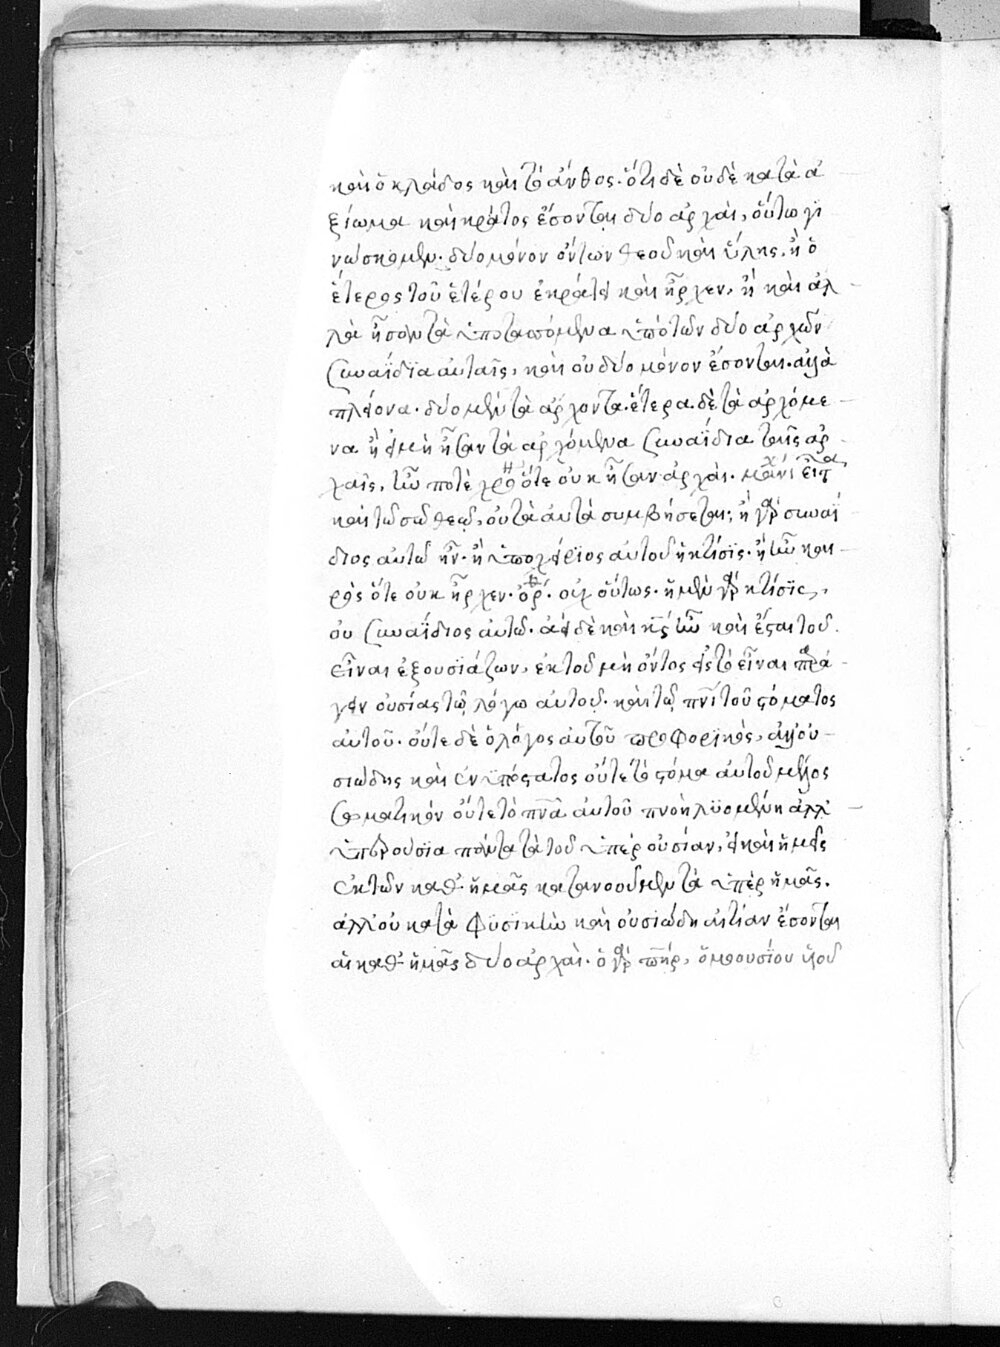 καὶ ὁ κλάδος καὶ τὸ ἄνθος. ὅτι δὲ οὐδὲ κατὰ ἀ
ξίωμα καὶ κράτος ἔσονται δύο ἀρχαὶ, οὕτω γι
νώσκομεν. δύο μόνον ὄντων θεοῦ καὶ ὕλης, ἢ ὁ
ἕτερος τοῦ ἑτέρου ἐκράτει καὶ ἦρχεν, ἢ καὶ ἀλ
λὰ ἦσαν τὰ ὑποτασσόμενα ὑπὸ τῶν δύο ἀρχῶν
συναΐδια αὐταῖς, καὶ οὐ δύο μόνον ἔσονται. ἀλλὰ
πλείονα. δύο μὲν τὰ ἄρχοντα. ἕτερα δὲ τὰ ἀρχόμε
να ἢ εἰ μὴ ἦσαν τὰ ἀρχόμενα συναΐδια ταῖς ἀρ
χαῖς, ἦν ποτὲ χρό ὅτε οὐκ ἦσαν ἀρχαὶ.
καὶ τῶ σῶ θεῶ, τὰ αὐτὰ συμβήσεται; ἢ γὰρ συναΐ
διος αὐτῶ ἦν. ἢ ὑποχείριος αὐτοῦ ἡ κτίσϊς. ἢ ἦν και
ρὸς ὅτε οὐκ ἦρχεν. ὀρ. οὐχ οὕτως. ἡ μὲν γὰρ κτίσϊς,
οὐ συναΐδιος αὐτῶ. ἀεὶ δὲ καὶ ἦν καὶ ἔσται τοῦ
εἶναι ἐξουσϊάζων, ἐκ τοῦ μὴ ὄντος εἰς τὸ εἶναι παρά
γειν οὐσίας τῶ λόγω αὐτοῦ. καὶ τῶ πνι τοῦ στόματος
αὐτοῦ. οὔτε δὲ ὁ λόγος αὐτοῦ προφορϊκὸς, ἀλλ' οὐ
σιώδης καὶ ἐνϋπόστατος οὔτε τὸ στόμα αὐτοῦ μέλος
σωματικόν οὔτε τὸ πνα αὐτοῦ πνοὴ λϋομένη ἀλλ'
ὑπερούσϊα πάντα τὰ τοῦ ὑπὲρ οὐσίαν, εἰ καὶ ἡμεῖς
ἐκ τῶν καθ' ἡμᾶς κατανοοῦμεν τὰ ὑπὲρ ἡμᾶς.
ἀλλ' οὐ κατὰ φϋσϊκὴν καὶ οὐσιώδη αἰτίαν ἔσονται
αἱ καθ' ἡμᾶς δύο ἀρχαὶ. ὁ γὰρ πηρ, ὁμοουσΐου ϋοῦ